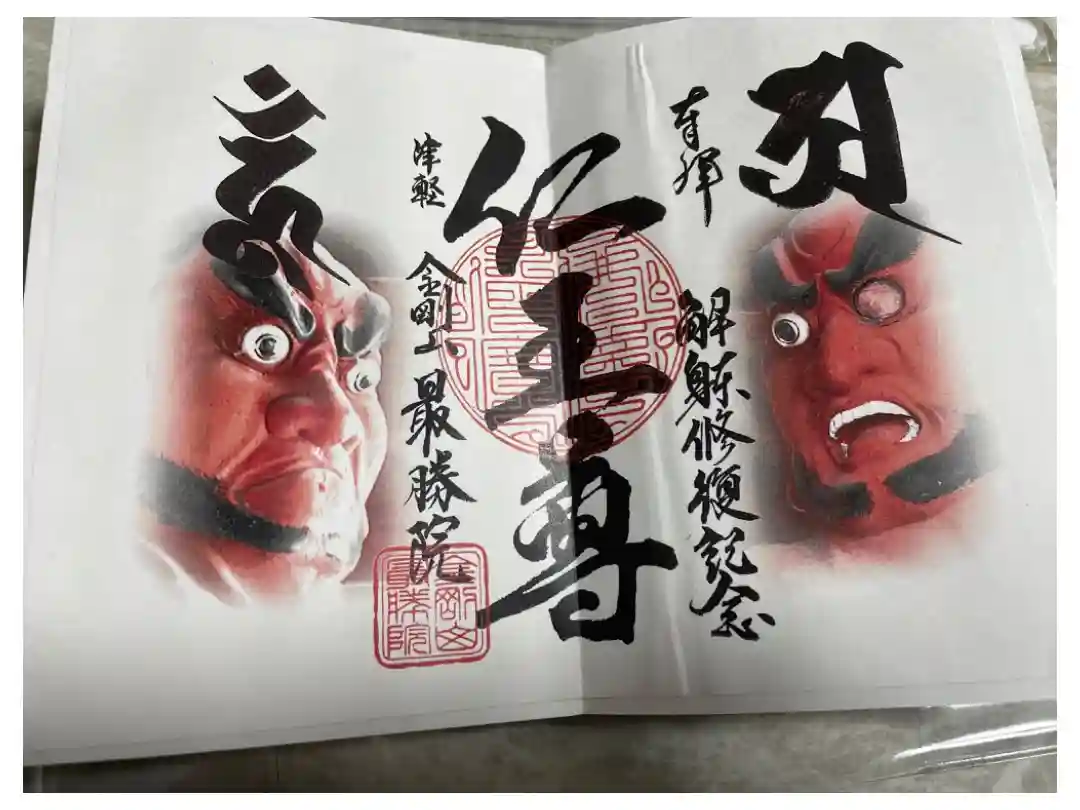 奉拝
解躰修復記念
仁王尊
津軽 金剛山 最勝院
金剛山
最勝院